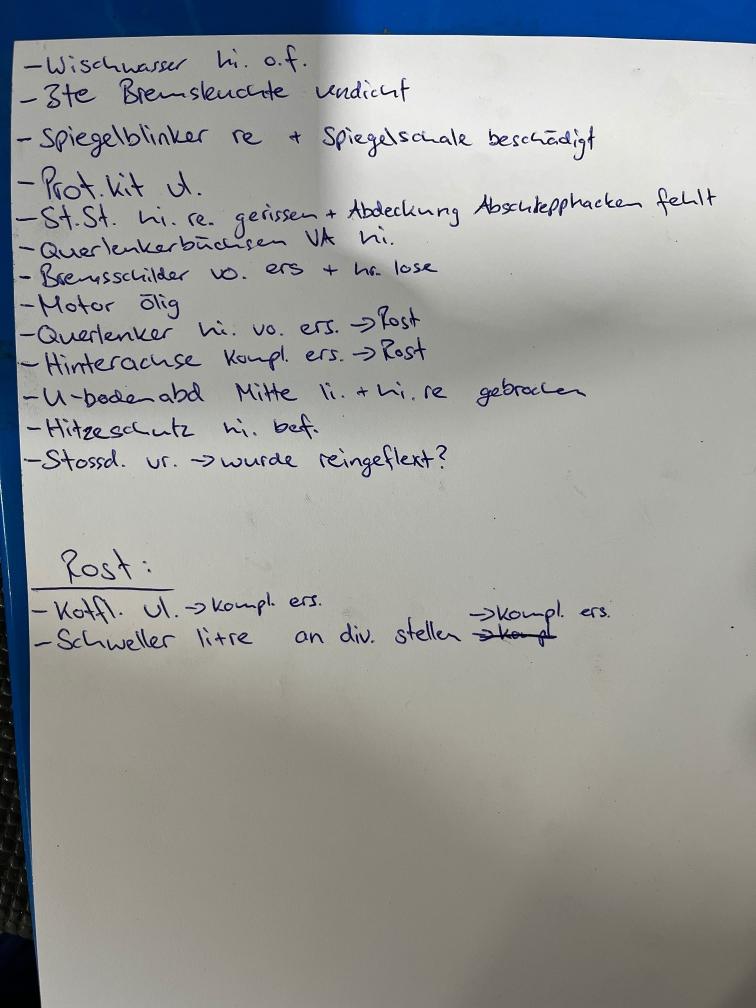 - Wischwasser hi. o.f.
- 3te Bremsleuchte undicht
- Spiegelblinker re + Spiegelschale beschädigt
- Prot.kit vl.
- St.St. hi. re. gerissen + Abdeckung Abschlepphacken fehlt
- Querlenkerbüchsen VA hi.
- Bremsschilder vo. ers + hr. lose
- Motor ölig
- Querlenker hi. vo. ers. → Rost
- Hinterachse kompl. ers. → Rost
- U-bodenabd Mitte li. + hi. re gebrochen
- Hitzeschutz hi. bef.
- Stossd. vr. → wurde reingeflext?
Rost:
- Kotfl. vl. → kompl. ers.
- Schweller li+re an div. stellen → kompl. ers.